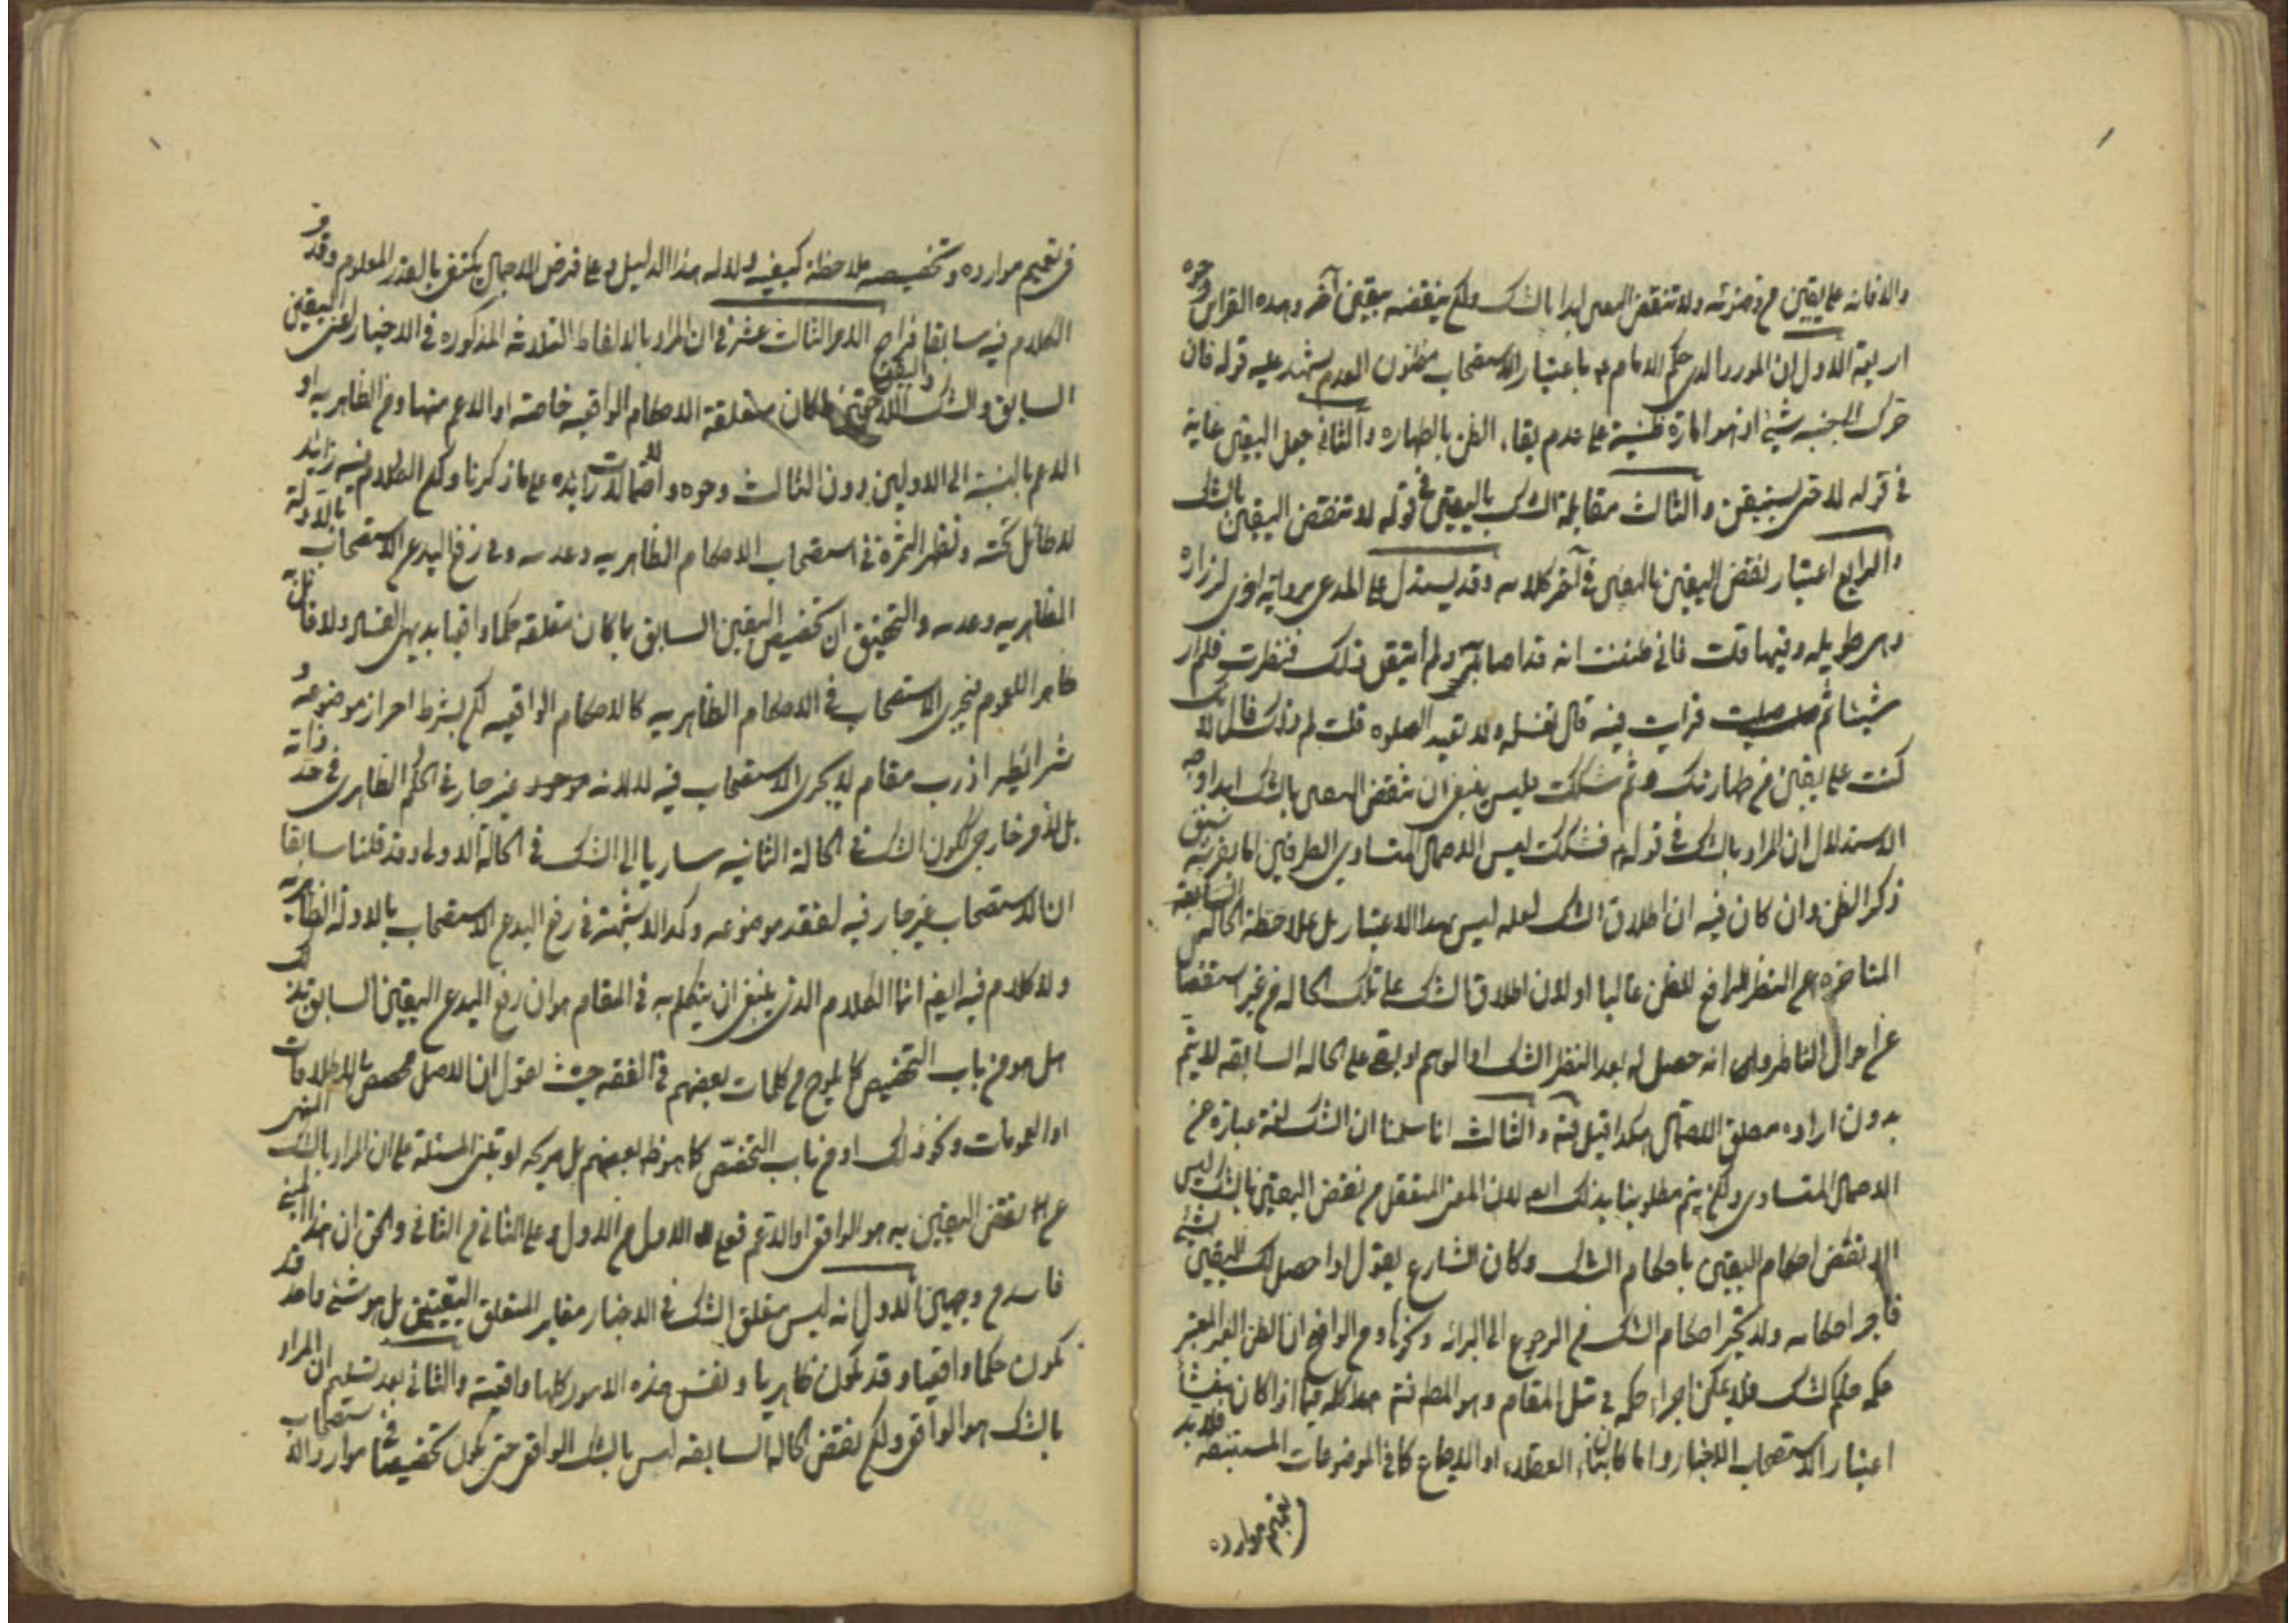 والا فانه على يقين من وضوئه ولا تنقض اليقين ابدا بالشك ولكن ينقضه بيقين آخر وهذه القرائن وجوه
اربعة الاول ان المورد الذي حكم الامام ع باعتبار الاستصحاب مظنون العدم يشهد عليه قوله فان
حرك الى جنبه شيئ اذ هو امارة ظنية على عدم بقاء الظن بالطهاره والثاني جعل اليقين غاية
في قوله لا حتى يستيقن والثالث مقابلة الشك باليقين في قوله لا تنقض اليقين بالشك
والرابع اعتبار نقض اليقين باليقين في آخر كلامه وقد يستدل على المدعى برواية اخرى لزراره
وهي طويله وفيها قلت فاني ظننت انه قد اصابه ولم اتيقن ذلك فنظرت فلم ار
شيئا ثم صليت فرايت فيه قال تغسله ولا تعيد الصلوه قلت لم ذلك قال لانك
كنت على يقين من طهارتك ثم شككت فليس ينبغي ان تنقض اليقين بالشك ابدا وجه
الاستدلال ان المراد بالشك في قوله فشككت ليس الاحتمال المتساوي الطرفين لما سبق
ذكر الظن وان كان فيه ان اطلاق الشك لعله ليس بهذا الاعتبار بل بملاحظة الحاله السابقه
المتاخره عن النظر الرافع للظن غالبا اولان اطلاق الشك على تلك الحاله من غير استفصال
عن احوال الناظر وانه حصل له بعد النظر الشك او الوهم او بقى على الحاله السابقه لا يتم
بدون اراده مطلق الاحتمال هكذا قيل فتد والثالث انا سلمنا ان الشك لغة عبارة عن
الاحتمال المتساوي ولكن يتم مطلوبنا بذلك ايضا لان المعنى المتعقل من نقض اليقين بالشك ليس
الا نقض احكام اليقين باحكام الشك وكان الشارع يقول اذا حصل لك اليقين بشئ
فاجر احكامه ولا تجر احكام الشك من الرجوع الى البرائه ونحوها ومن الواضح ان الظن الغير المعتبر
حكمه حكم الشك فلا يمكن اجراء حكمه في مثل المقام وهو المط فتم هذا كله فيما اذا كان منشأ
اعتبار الاستصحاب الاخبار واما كان بناء العقلاء او الاجماع كما في الموضوعات المستنبطه فلا بد
تعميم موارده
في تعميم موارده وتخصيصه ملاحظة كيفيه دلاله هذا الدليل وعلى فرض الاجمال يكتفى بالقدر المعلوم وقد مر
الكلام فيه سابقا فراجع الامر الثالث عشر في ان المراد بالالفاظ الثلاثه المذكوره في الاخبار اعنى اليقين
السابق والشك واليقين اللاحقين ما كان متعلقة الاحكام الواقعيه خاصة او الاعم منها ومن الظاهريه او
الاعم بالنسبة الى الاولين دون الثالث وجوه واحتمالات زائده على ما ذكرنا ولكن الكلام فيه زايد
لا طائل تحته وتظهر الثمرة في استصحاب الاحكام الظاهريه وعدمه وفي رفع اليد عن الاستصحاب بالادلة
الظاهريه وعدمه والتحقيق ان تخصيص اليقين السابق بما كان متعلقه حكما واقعيا بديهى الفساد ولا قائل به
ظاهرا للعموم فيجرى الاستصحاب في الاحكام الظاهريه كالاحكام الواقعيه لكن بشرط احراز موضوعه و
شرائطه اذ رب مقام لا يجرى الاستصحاب فيه لا لانه غير جار في الحكم الظاهرى في حد ذاته
بل لامر خارجى ككون الشك في الحالة الثانيه ساريا الى الشك في الحالة الاولى وقد قلنا سابقا
ان الاستصحاب غير جار فيه لفقد موضوعه وكذا لا شبهة في رفع اليد عن الاستصحاب بالادلة الظاهريه
ولا كلام فيه ايضا انما الكلام الذي ينبغى ان يتكلم به في المقام هو ان رفع اليد عن اليقين السابق بذلك
هل هو من باب التخصيص كما يلوح من كلمات بعضهم في الفقه حيث يقول ان الاصل مخصص بالاطلاقات
او العمومات ونحو ذلك او من باب التخصص كما هو ظ بعضهم بل صريحه لو تبتنى المسئلة على ان المراد بالشك المنهى
عن نقض اليقين به هو الواقعى او الاعم فعلى الاول من الاول وعلى الثاني من الثاني والحق ان هذا المبنى
فاسد من وجهين الاول انه ليس متعلق الشك في الاخبار مغاير المتعلق اليقينين بل هو شئ واحد قد
يكون حكما واقعيا وقد يكون ظاهريا ونفس هذه الامور كلها واقعية والثاني بعد تسليم ان المراد
بالشك هو الواقعى ولكن نقض الحالة السابقه ليس بالشك الواقعى حتى يكون تخصيصا في موارد الاستصحاب